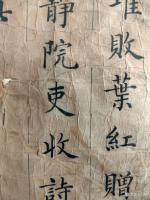 堆敗葉紅贈
静院吏收詩